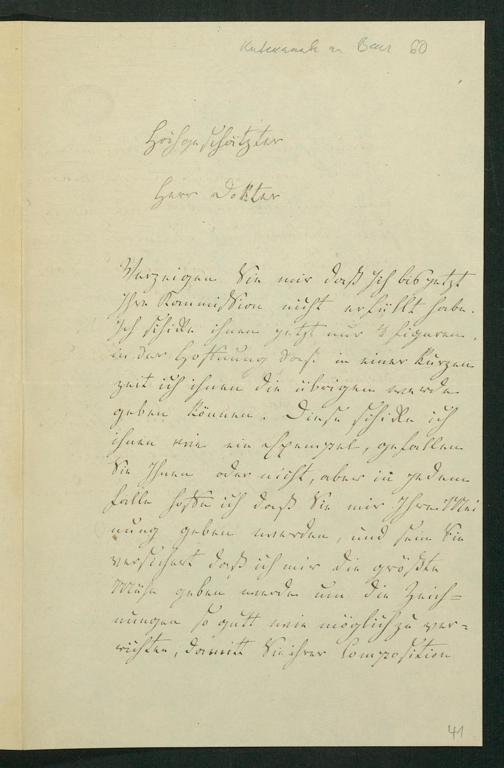 60
Hochgeschätzter
Herr Dokter
Verzeigen Sie mir daß Ich bis jetzt
Ihre Kommission nicht erfüllt habe.
Ich schike ihnen jetzt nur 3 Figuren,
in der Hoffnung das in einer kurzen
zeit ich ihnen die übrigen werde
geben können. Diese schike ich
ihnen wie ein Exempel, gefallen
Sie Ihnen oder nicht, aber in jedem
falle hoffe ich daß Sie mir Ihre Mei
nung geben werden, und sein Sie
versichert daß ich mir die größte
Mühe geben werde um die Zeich=
nungen so gutt wie möglich zu ver=
richten, damitt Sie ihrer Composition
41